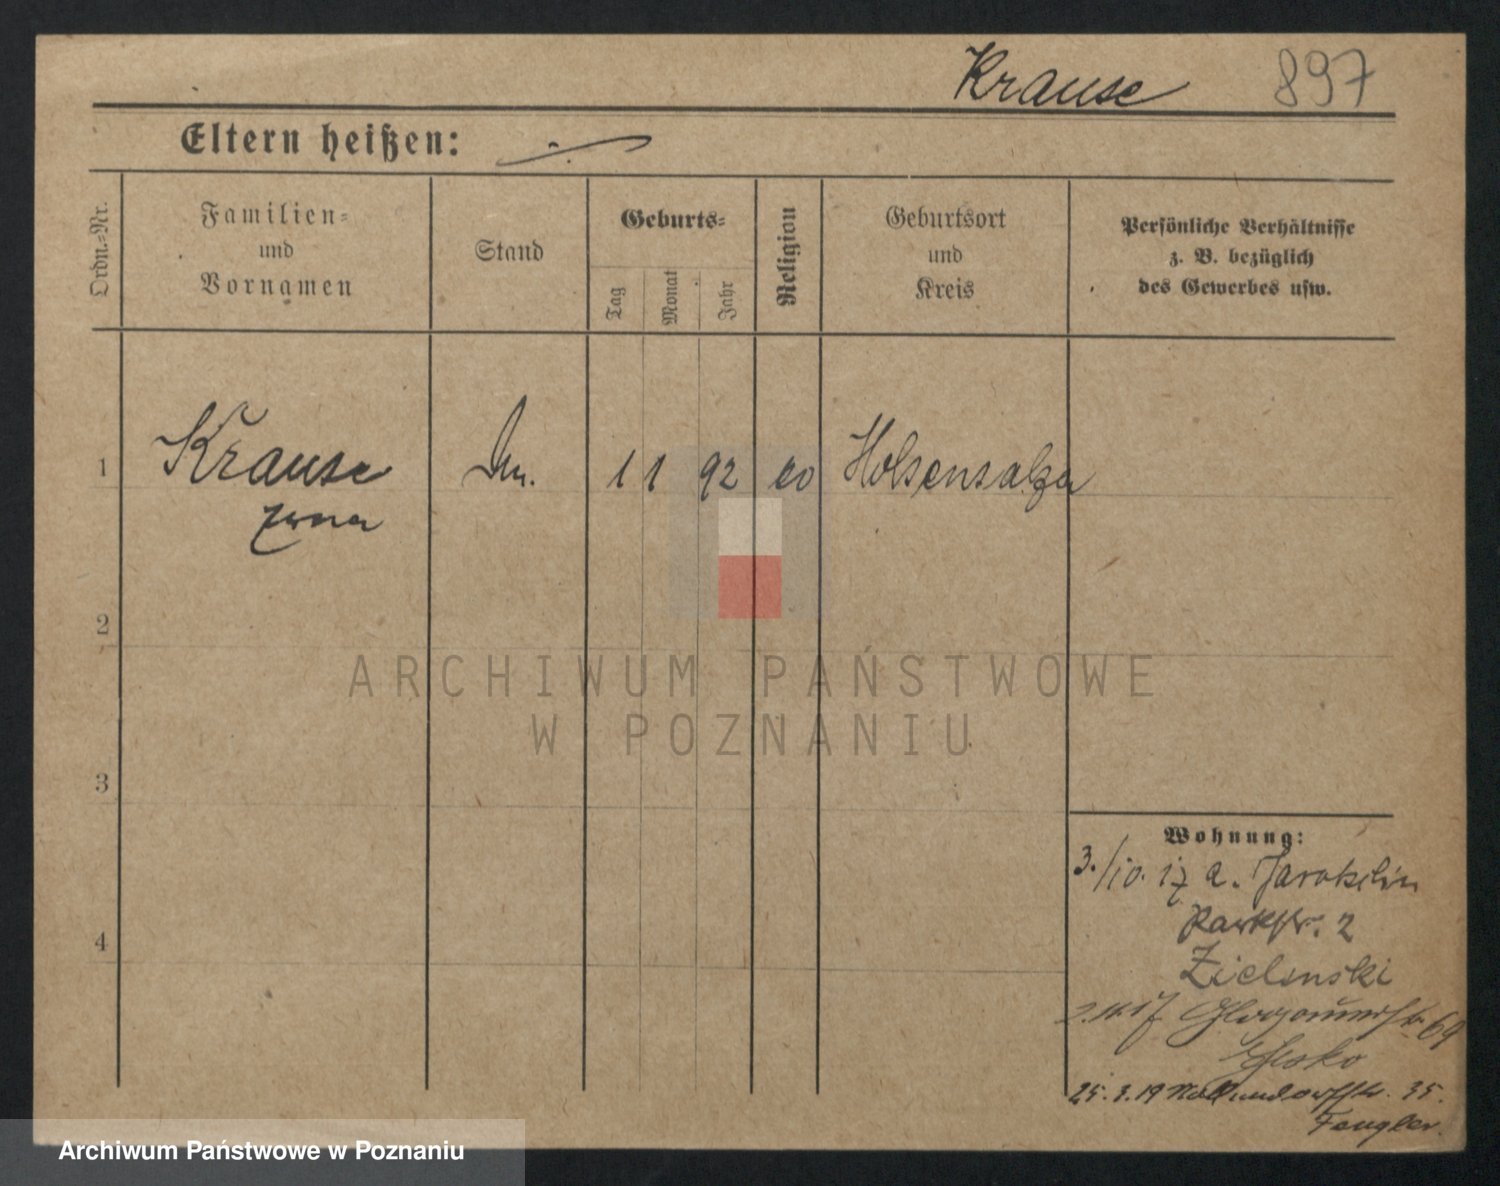 Krause 897
Eltern heißen: ./.
Ordn.-Nr.
Familien-
und
Vornamen
Stand
Geburts-
Tag
Monat
Jahr
Religion
Geburtsort
und
Kreis
Persönliche Verhältnisse
z. B. bezüglich
des Gewerbes usw.
1 Krause 1 1 92 Hohensalza
Erna
2
3
4
ARCHIWUM PAŃSTWOWE
W POZNANIU
Wohnung:
3./10. 17 a. Jarotschin
Parkstr. 2
Zielinski
2.11.17 Glogauerstr. 69
25.3.19 Nollendorfstr. 35.
Fengler.
Archiwum Państwowe w Poznaniu